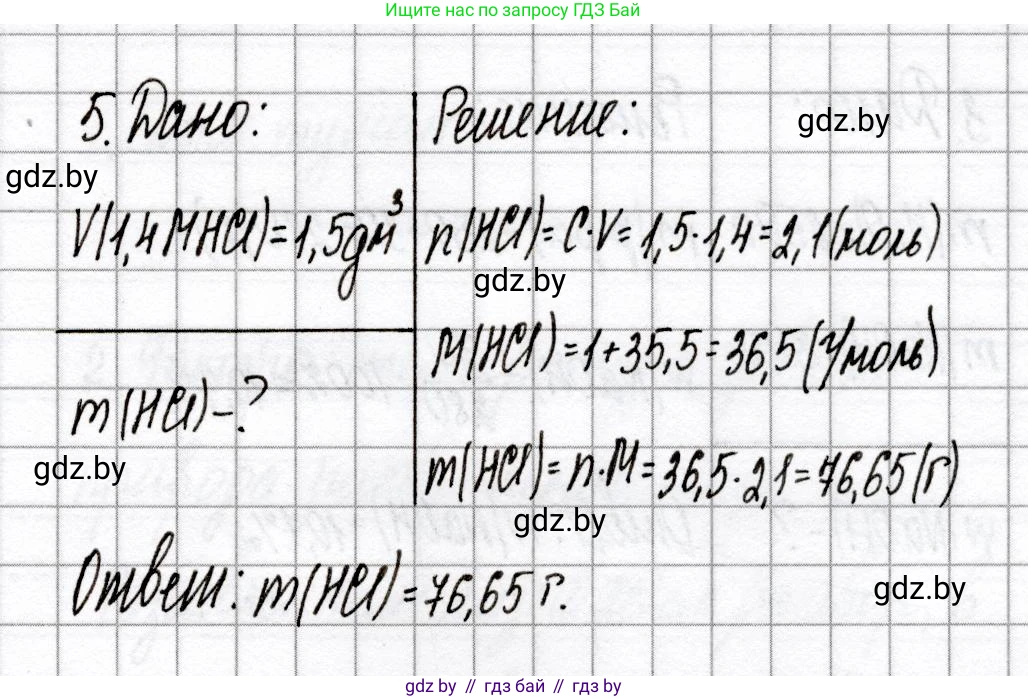 Ищите нас по запросу ГДЗ Бай
5. Дано:
Решение:
gdz.by
gdz.by
V(1,4 М HCl) = 1,5 дм³
n(HCl) = C·V = 1,5·1,4 = 2,1 (моль)
gdz.by
M(HCl) = 1 + 35,5 = 36,5 (г/моль)
m(HCl) - ?
gdz.by
m(HCl) = n·M = 36,5·2,1 = 76,65 (г)
gdz.by
Ответ: m(HCl) = 76,65 г.
gdz.by
gdz.by // гдз бай // гдз by